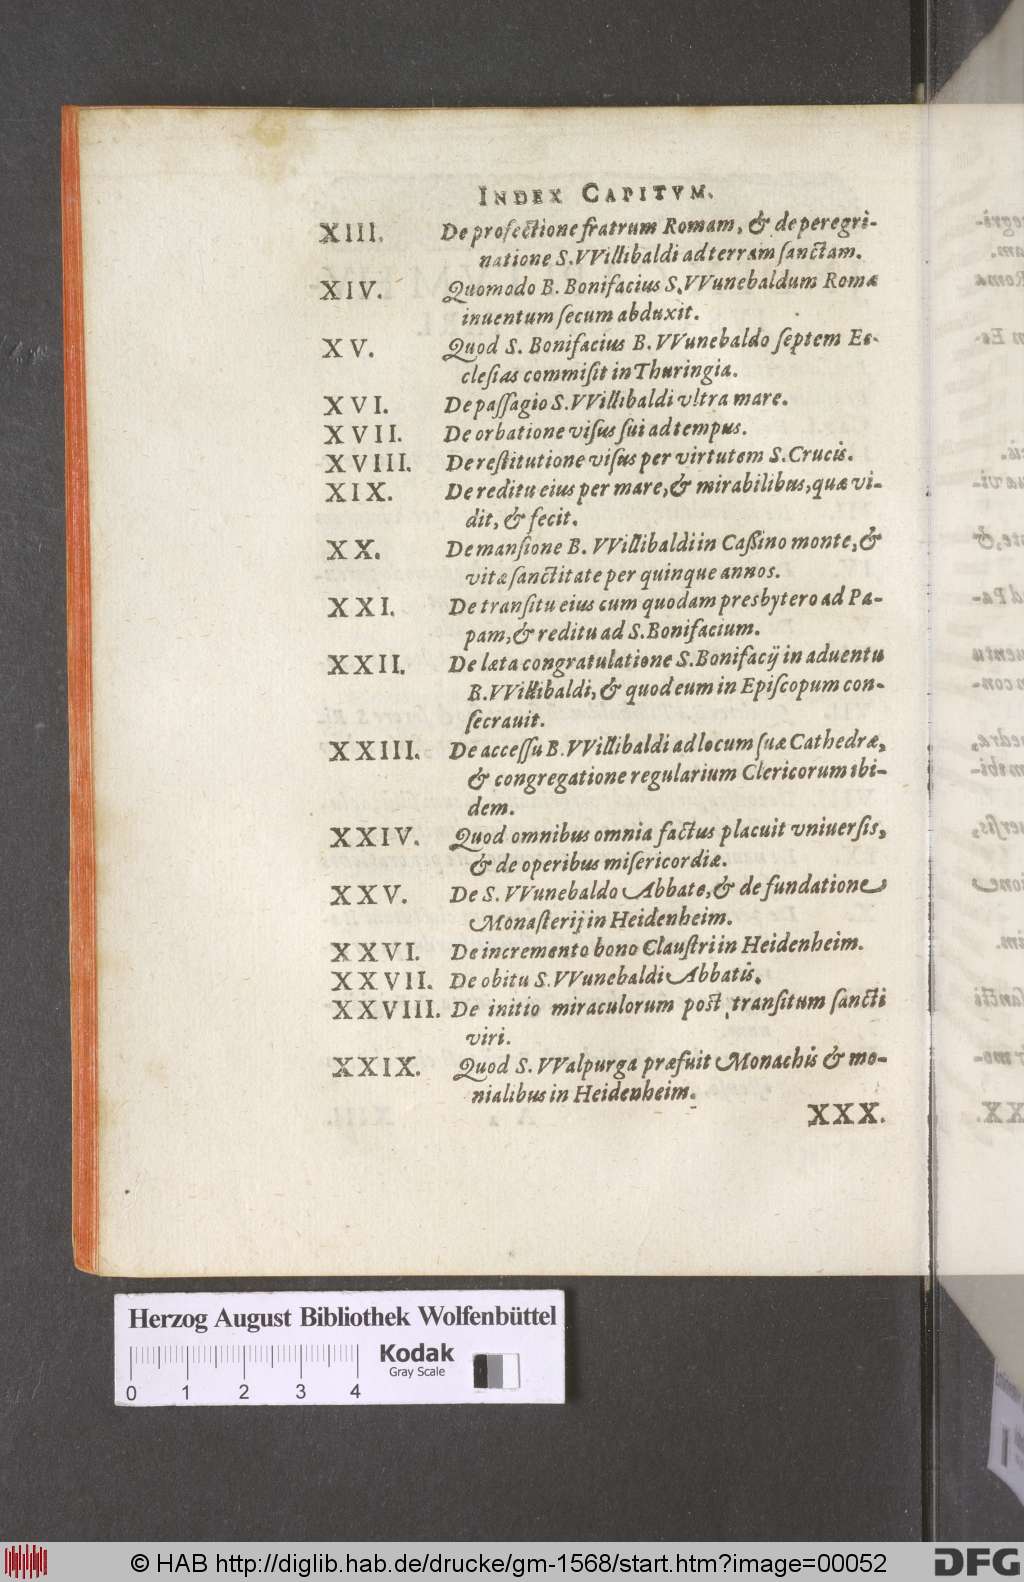 INDEX CAPITVM.
XIII. De profectione fratrum Romam, & de peregri-
natione S. VVillibaldi ad terram sanctam.
XIV. Quomodo B. Bonifacius S. VVunebaldum Romæ
inuentum secum abduxit.
XV. Quod S. Bonifacius B. VVunebaldo septem Ec-
clesias commisit in Thuringia.
XVI. De passagio S. VVillibaldi vltra mare.
XVII. De orbatione visus sui ad tempus.
XVIII. De restitutione visus per virtutem S. Crucis.
XIX. De reditu eius per mare, & mirabilibus, quæ vi-
dit, & fecit.
XX. De mansione B. VVillibaldi in Cassino monte, &
vitæ sanctitate per quinque annos.
XXI. De transitu eius cum quodam presbytero ad Pa-
pam, & reditu ad S. Bonifacium.
XXII. De læta congratulatione S. Bonifacij in aduentu
B. VVillibaldi, & quod eum in Episcopum con-
secrauit.
XXIII. De accessu B. VVillibaldi ad locum suæ Cathedræ,
& congregatione regularium Clericorum ibi-
dem.
XXIV. Quod omnibus omnia factus placuit vniuersis,
& de operibus misericordiæ.
XXV. De S. VVunebaldo Abbate, & de fundatione
Monasterij in Heidenheim.
XXVI. De incremento bono Claustri in Heidenheim.
XXVII. De obitu S. VVunebaldi Abbatis.
XXVIII. De initio miraculorum post transitum sancti
viri.
XXIX. Quod S. VValpurga præfuit Monachis & mo-
nialibus in Heidenheim.
XXX.
Herzog August Bibliothek Wolfenbüttel
Kodak
Gray Scale
0 1 2 3 4
© HAB http://diglib.hab.de/drucke/gm-1568/start.htm?image=00052
DFG